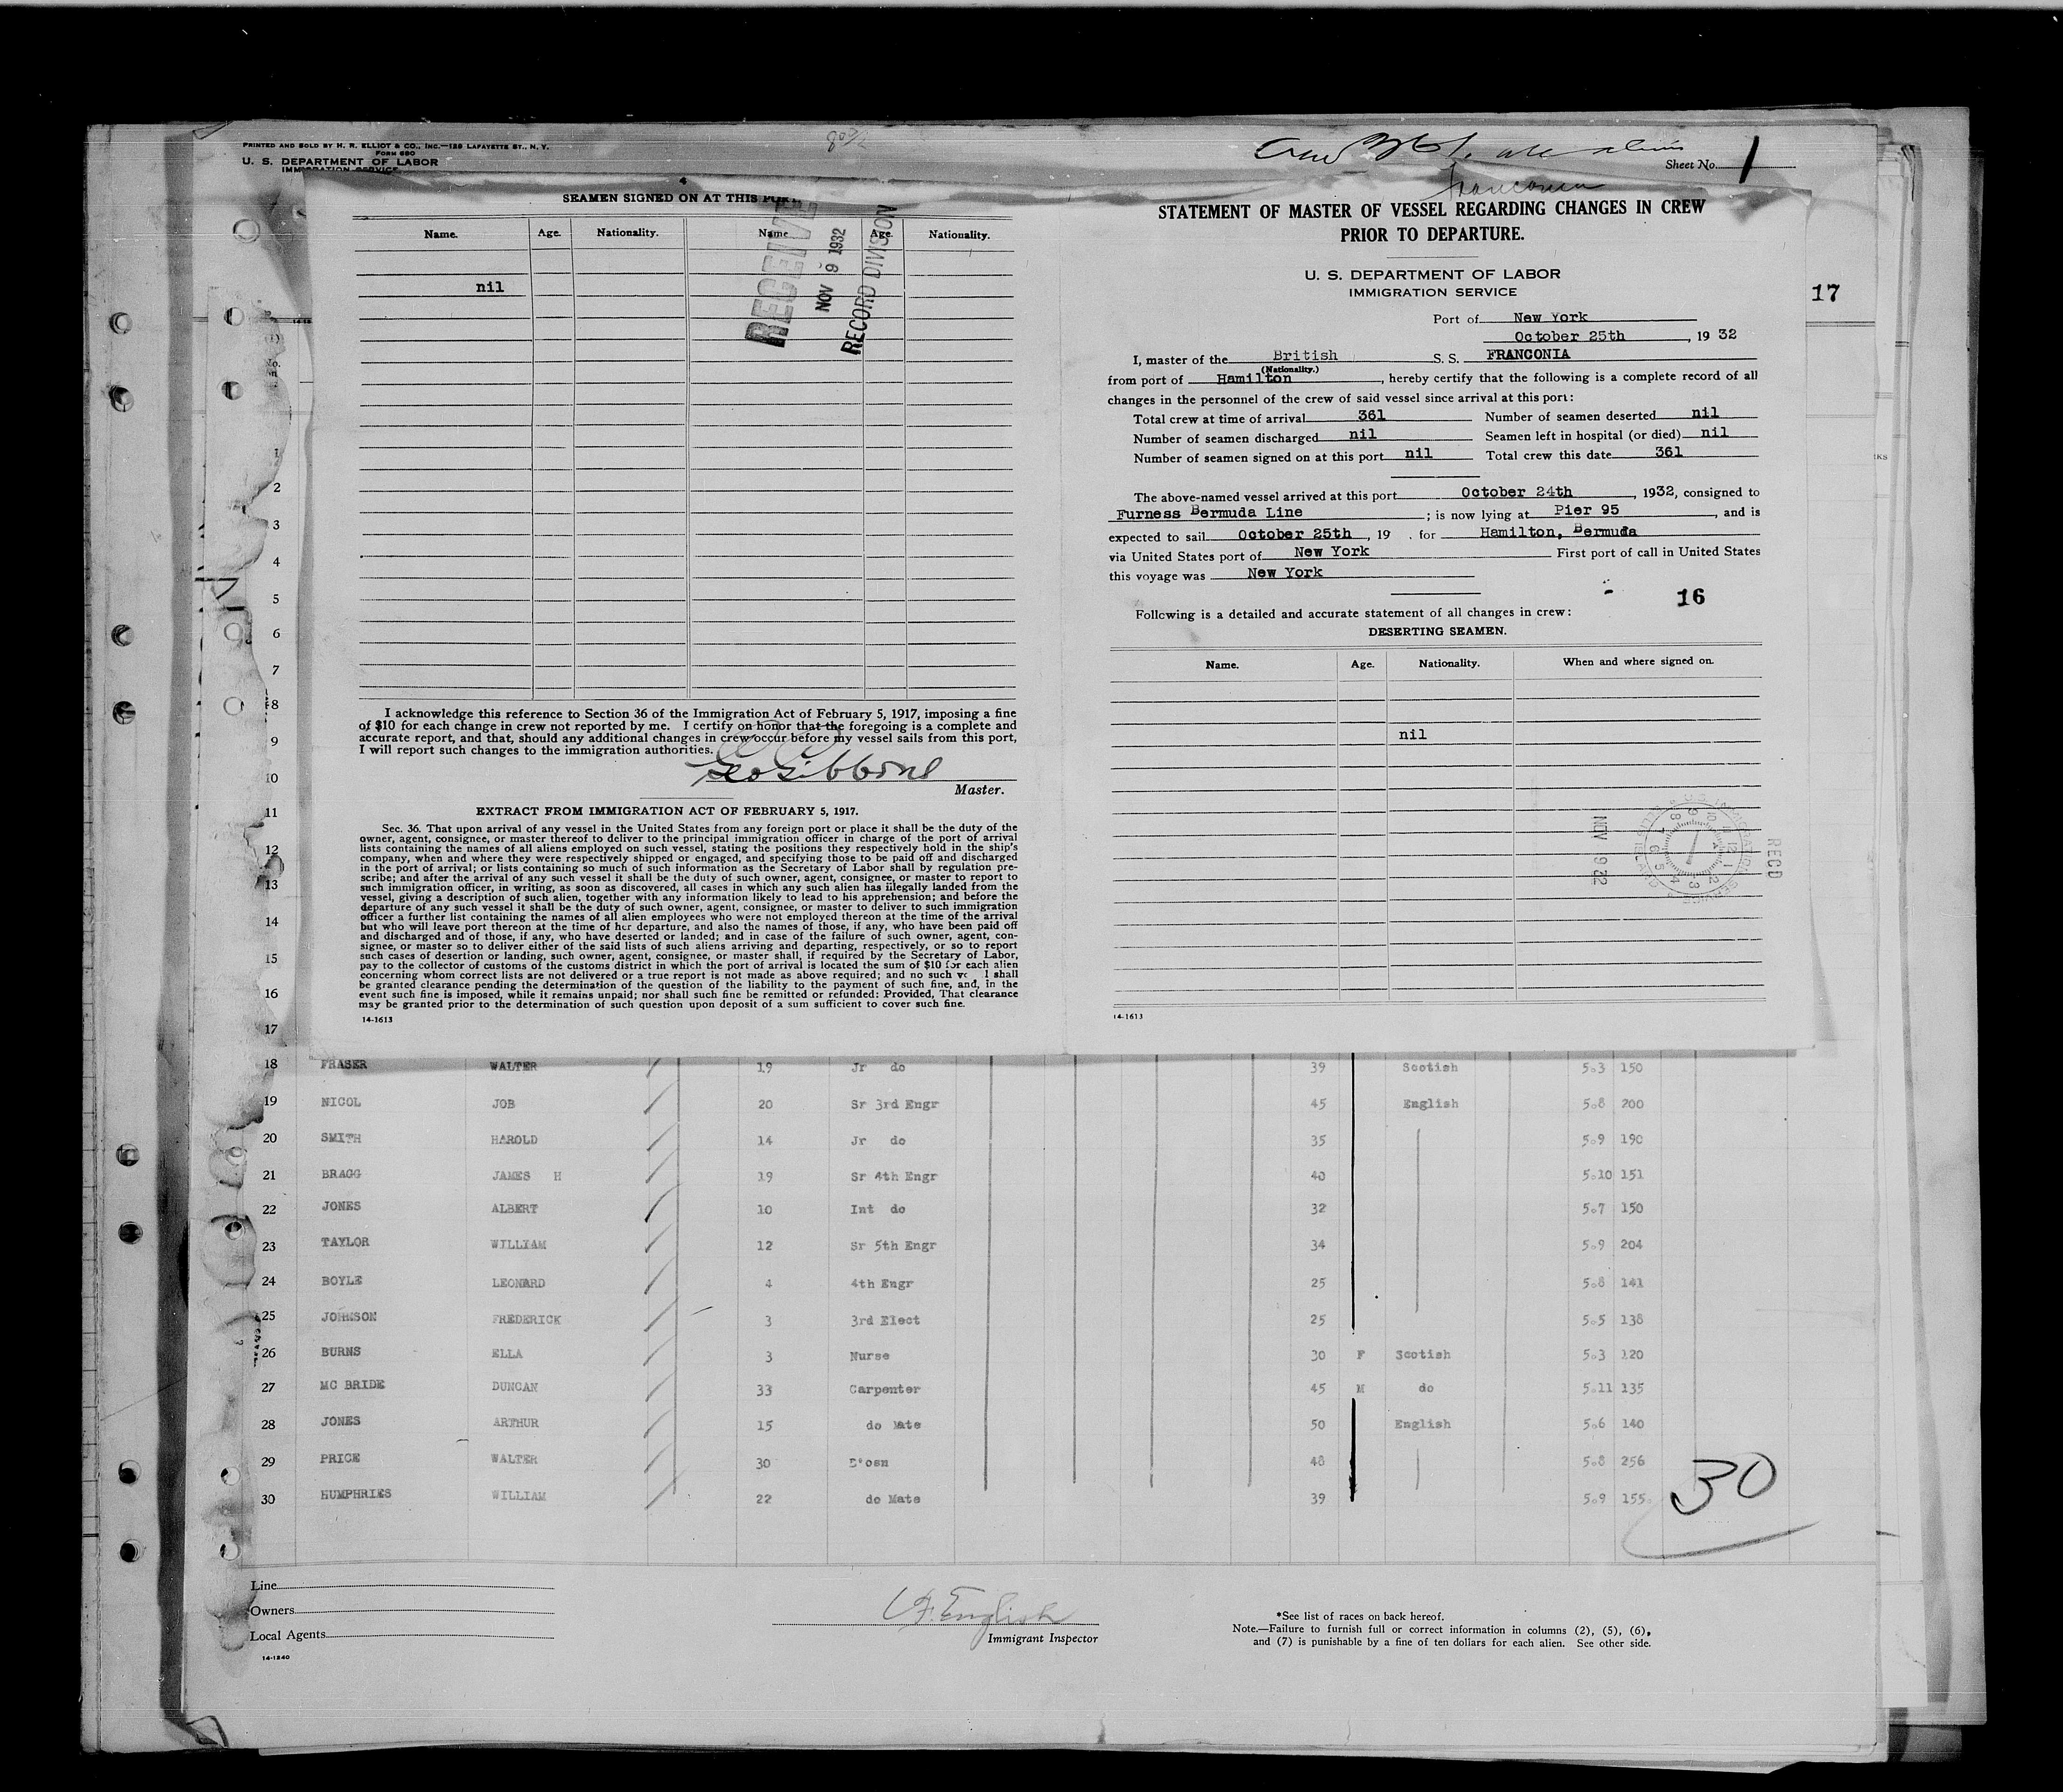 PRINTED AND SOLD BY H. R. ELLIOT & CO., INC.—128 LAFAYETTE ST., N. Y.
FORM 680
U. S. DEPARTMENT OF LABOR
IMMIGRATION SERVICE
Sheet No. 1
Franconia
4
SEAMEN SIGNED ON AT THIS PORT
Name. Age. Nationality. Name Age. Nationality.
nil
RECEIVED
NOV 9 1932
RECORD DIVISION
I acknowledge this reference to Section 36 of the Immigration Act of February 5, 1917, imposing a fine
of $10 for each change in crew not reported by me. I certify on honor that the foregoing is a complete and
accurate report, and that, should any additional changes in crew occur before my vessel sails from this port,
I will report such changes to the immigration authorities.
Geo Gibbons
Master.
EXTRACT FROM IMMIGRATION ACT OF FEBRUARY 5, 1917.
Sec. 36. That upon arrival of any vessel in the United States from any foreign port or place it shall be the duty of the
owner, agent, consignee, or master thereof to deliver to the principal immigration officer in charge of the port of arrival
lists containing the names of all aliens employed on such vessel, stating the positions they respectively hold in the ship's
company, when and where they were respectively shipped or engaged, and specifying those to be paid off and discharged
in the port of arrival; or lists containing so much of such information as the Secretary of Labor shall by regulation pre-
scribe; and after the arrival of any such vessel it shall be the duty of such owner, agent, consignee, or master to report to
such immigration officer, in writing, as soon as discovered, all cases in which any such alien has illegally landed from the
vessel, giving a description of such alien, together with any information likely to lead to his apprehension; and before the
departure of any such vessel it shall be the duty of such owner, agent, consignee, or master to deliver to such immigration
officer a further list containing the names of all alien employees who were not employed thereon at the time of the arrival
but who will leave port thereon at the time of her departure, and also the names of those, if any, who have been paid off
and discharged and of those, if any, who have deserted or landed; and in case of the failure of such owner, agent, con-
signee, or master so to deliver either of the said lists of such aliens arriving and departing, respectively, or so to report
such cases of desertion or landing, such owner, agent, consignee, or master shall, if required by the Secretary of Labor,
pay to the collector of customs of the customs district in which the port of arrival is located the sum of $10 for each alien
concerning whom correct lists are not delivered or a true report is not made as above required; and no such ve l shall
be granted clearance pending the determination of the question of the liability to the payment of such fine, and, in the
event such fine is imposed, while it remains unpaid; nor shall such fine be remitted or refunded: Provided, That clearance
may be granted prior to the determination of such question upon deposit of a sum sufficient to cover such fine.
14-1613
STATEMENT OF MASTER OF VESSEL REGARDING CHANGES IN CREW
PRIOR TO DEPARTURE.
U. S. DEPARTMENT OF LABOR
IMMIGRATION SERVICE
17
Port of New York
October 25th, 1932
I, master of the British S. S. FRANCONIA
(Nationality.)
from port of Hamilton, hereby certify that the following is a complete record of all
changes in the personnel of the crew of said vessel since arrival at this port:
Total crew at time of arrival 361 Number of seamen deserted nil
Number of seamen discharged nil Seamen left in hospital (or died) nil
Number of seamen signed on at this port nil Total crew this date 361
The above-named vessel arrived at this port October 24th, 1932, consigned to
Furness Bermuda Line; is now lying at Pier 95, and is
expected to sail October 25th, 19 . for Hamilton, Bermuda
via United States port of New York First port of call in United States
this voyage was New York
16
Following is a detailed and accurate statement of all changes in crew:
DESERTING SEAMEN.
Name. Age. Nationality. When and where signed on.
nil
NOV 932
RECD
14-1613
1
2
3
4
5
6
7
8
9
10
11
12
13
14
15
16
17
18 FRASER WALTER 19 Jr do 39 Scotish 5.3 150
19 NICOL JOB 20 Sr 3rd Engr 45 English 5.8 200
20 SMITH HAROLD 14 Jr do 35 5.9 190
21 BRAGG JAMES H 19 Sr 4th Engr 40 5.10 151
22 JONES ALBERT 10 Int do 32 5.7 150
23 TAYLOR WILLIAM 12 Sr 5th Engr 34 5.9 204
24 BOYLE LEONARD 4 4th Engr 25 5.8 141
25 JOHNSON FREDERICK 3 3rd Elect 25 5.5 138
26 BURNS ELLA 3 Nurse 30 F Scotish 5.3 120
27 MC BRIDE DUNCAN 33 Carpenter 45 M do 5.11 135
28 JONES ARTHUR 15 do Mate 50 English 5.6 140
29 PRICE WALTER 30 B'osn 48 5.8 256
30 HUMPHRIES WILLIAM 22 do Mate 39 5.9 155
30
Line
Owners
Local Agents
14-1240
English
Immigrant Inspector
*See list of races on back hereof.
Note.—Failure to furnish full or correct information in columns (2), (5), (6),
and (7) is punishable by a fine of ten dollars for each alien. See other side.